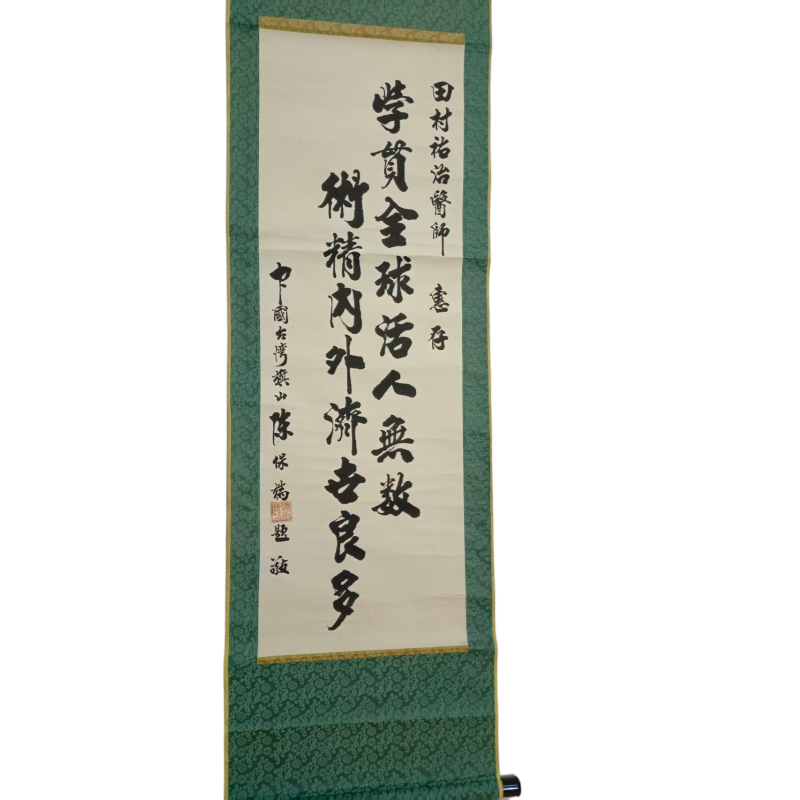 田村祐治醫師 惠存
学貫全球活人無数
術精内外濟世良多
中國台灣旗山陳保瑞題敬